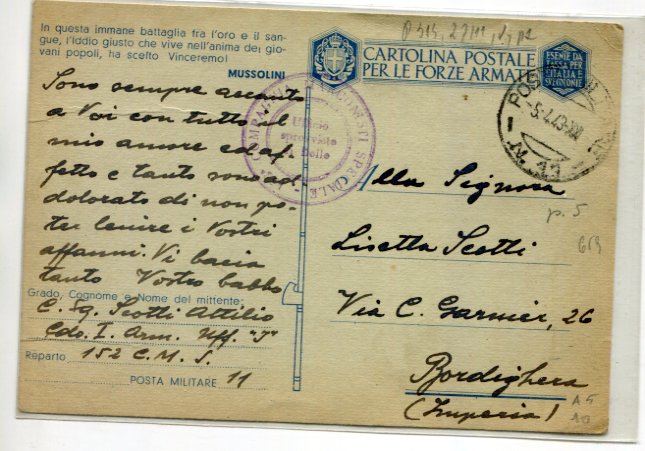 In questa immane battaglia fra l'oro e il san-
gue, l'Iddio giusto che vive nell'anima dei gio-
vani popoli, ha scelto Vinceremo!
MUSSOLINI
Sono sempre accanto
a Voi con tutto il
mio amore ed af-
fetto e tanto sono ad-
dolorato di non po-
ter lenire i Vostri
affanni. Vi bacia
tanto Vostro babbo
Grado, Cognome e Nome del mittente:
C. Sq. Scotti Attilio
Cdo. I. Arm. Uff. "I"
Reparto 152 C. M. S.
POSTA MILITARE 11
CARTOLINA POSTALE
PER LE FORZE ARMATE
ESENTE DA
TASSA PER
L'ITALIA E
SUE COLONIE
Ufficio
sprovvisto
di Bollo
SPECIALE
POSTA
-5.4.43-XXI
N. 11
Alla Signora
Lisetta Scotti
Via C. Garnier, 26
Bordighera
(Imperia)
p. 5
A 5